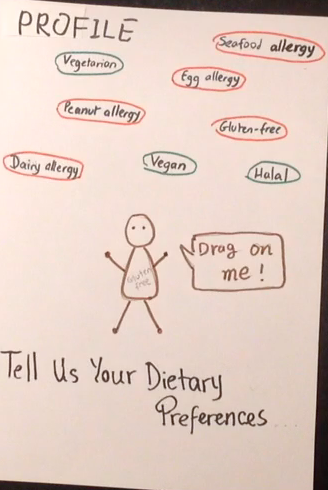 PROFILE
Seafood allergy
Vegetarian
Egg allergy
Peanut allergy
Gluten-free
Dairy allergy
Vegan
Halal
Drag on
me!
Gluten
free
Tell Us Your Dietary
Preferences...